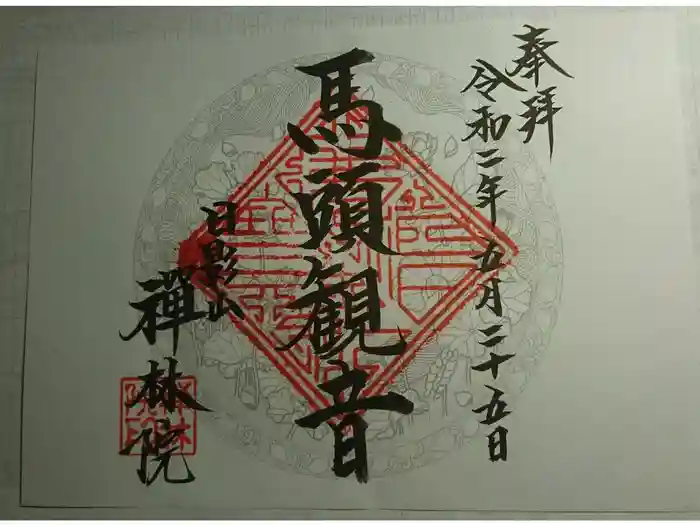 奉拝
令和二年五月二十五日
馬頭観音
日影山
禅林院